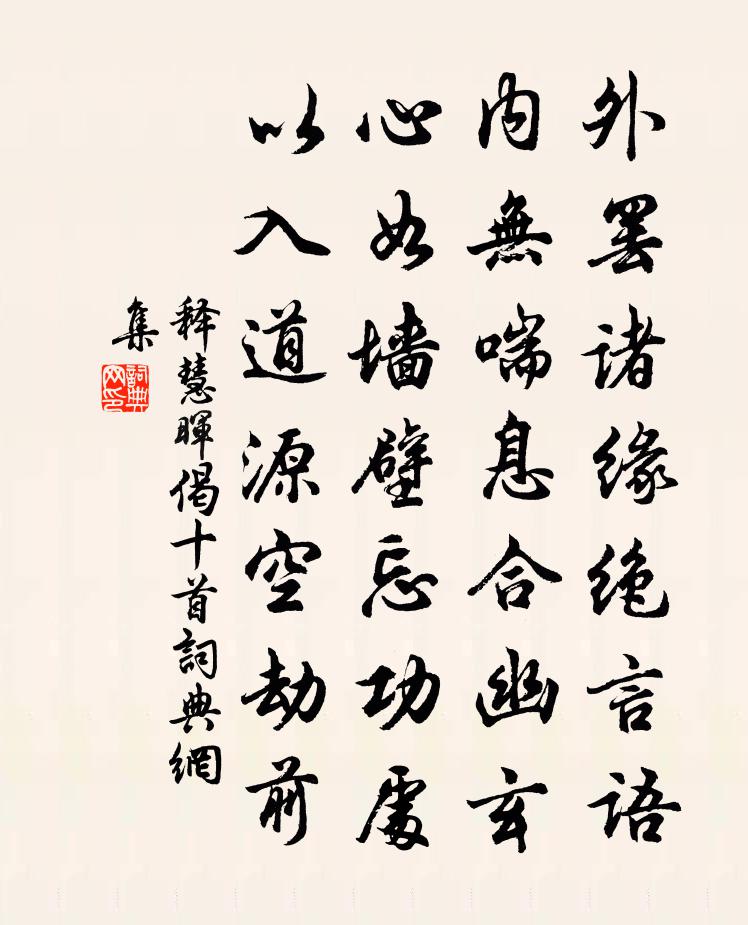 外罢諸緣绝言語
内無喘息合幽玄
心如墙壁忘功處
以入道源空劫前
释慧暉偈十首詞典網
集
詞典網印